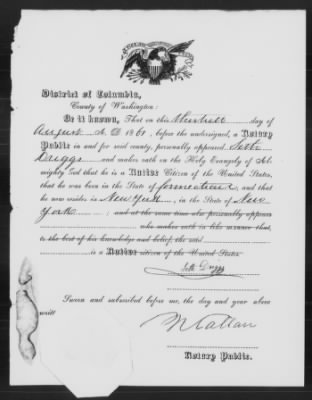 District of Columbia,
County of Washington:
Be it known, That on this Nineteenth day of
August A. D 1861, before the undersigned, a Notary
Public in and for said county, personally appeared Seth
Driggs and maketh oath on the Holy Evangely of Al-
mighty God that he is a Native Citizen of the United States,
that he was born in the State of Connecticut, and that
he now resides in New York, in the State of New
York; and at the same time also personally appears
who maketh oath in like manner that,
to the best of his knowledge and belief, the said
is a Native citizen of the United States
Seth Driggs
Sworn and subscribed before me, the day and year above
writt
N Callan
Notary Public.